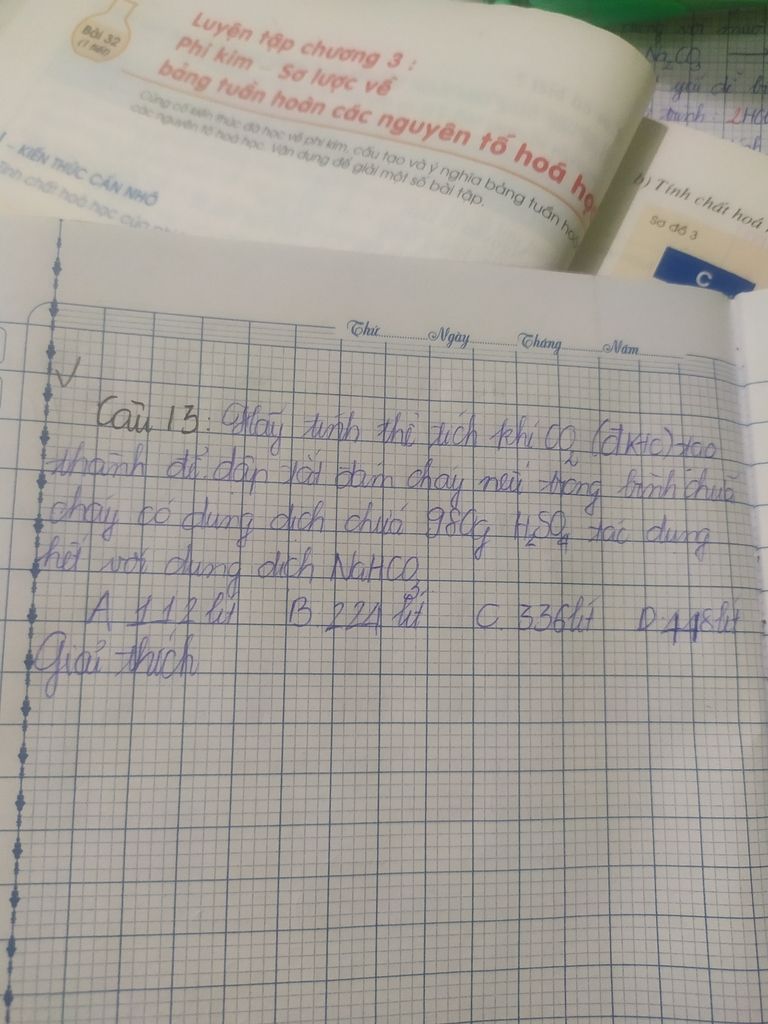 Bài 32
(1 tiết)
Luyện tập chương 3 :
Phi kim – Sơ lược về
bảng tuần hoàn các nguyên tố hoá họ
Củng cố kiến thức đã học về phi kim, cấu tạo và ý nghĩa bảng tuần hoà
các nguyên tố hoá học. Vận dụng để giải một số bài tập.
I – KIẾN THỨC CẦN NHỚ
Tính chất hoá học của
Na2CO3
b) Tính chất hoá
Sơ đồ 3
C
Thứ Ngày Tháng Năm
Câu 13: Hãy tính thể tích khí CO2 (đktc) tạo
thành để dập tắt đám cháy nếu trong bình chữa
cháy có dung dịch chứa 980g H2SO4 tác dụng
hết với dung dịch NaHCO3
A 112 lít B. 224 lít C. 336 lít D. 448 lít
Giải thích